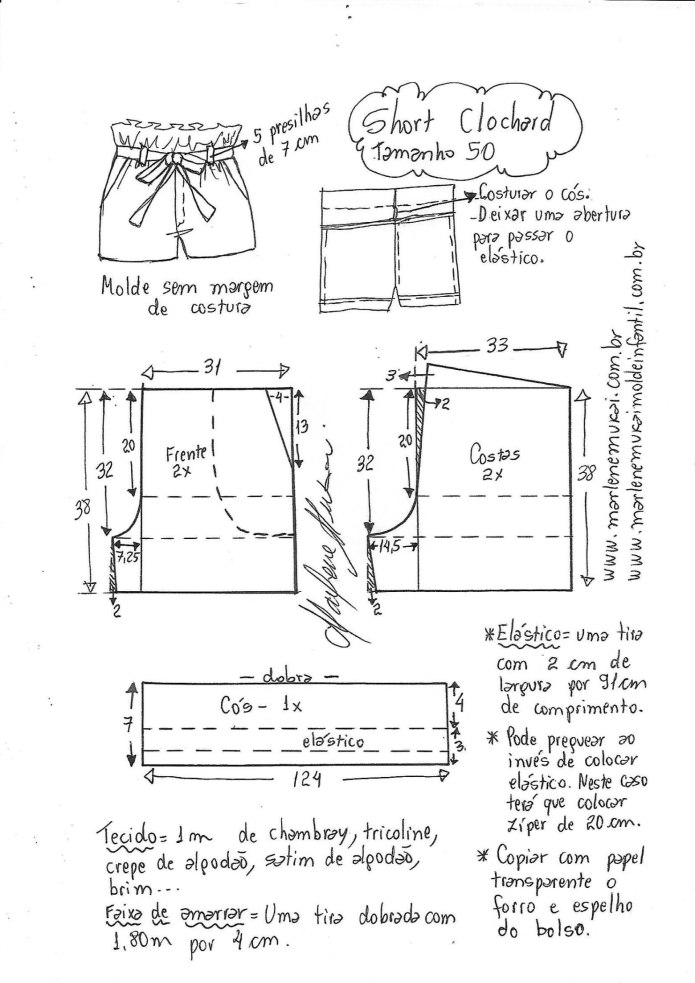 5 presilhas
de 7 cm
Short Clochard
Tamanho 50
-Costurar o cós.
-Deixar uma abertura
para passar o
elástico.
Molde sem margem
de costura
www.marlenemukai.com.br
www.marlenemukaimoldeinfantil.com.br
31
4
13
20
32
38
Frente
2x
7,25
2
33
3
2
20
32
38
Costas
2x
14,5
2
- dobra -
Cós - 1x
elástico
7
4
3
124
*Elástico= uma tira
com 2 cm de
largura por 91cm
de comprimento.
* Pode preguear ao
invés de colocar
elástico. Neste caso
terá que colocar
zíper de 20 cm.
* Copiar com papel
transparente o
forro e espelho
do bolso.
Tecido= 1m de chambray, tricoline,
crepe de algodão, satim de algodão,
brim...
Faixa de amarrar = Uma tira dobrada com
1,80m por 4 cm.